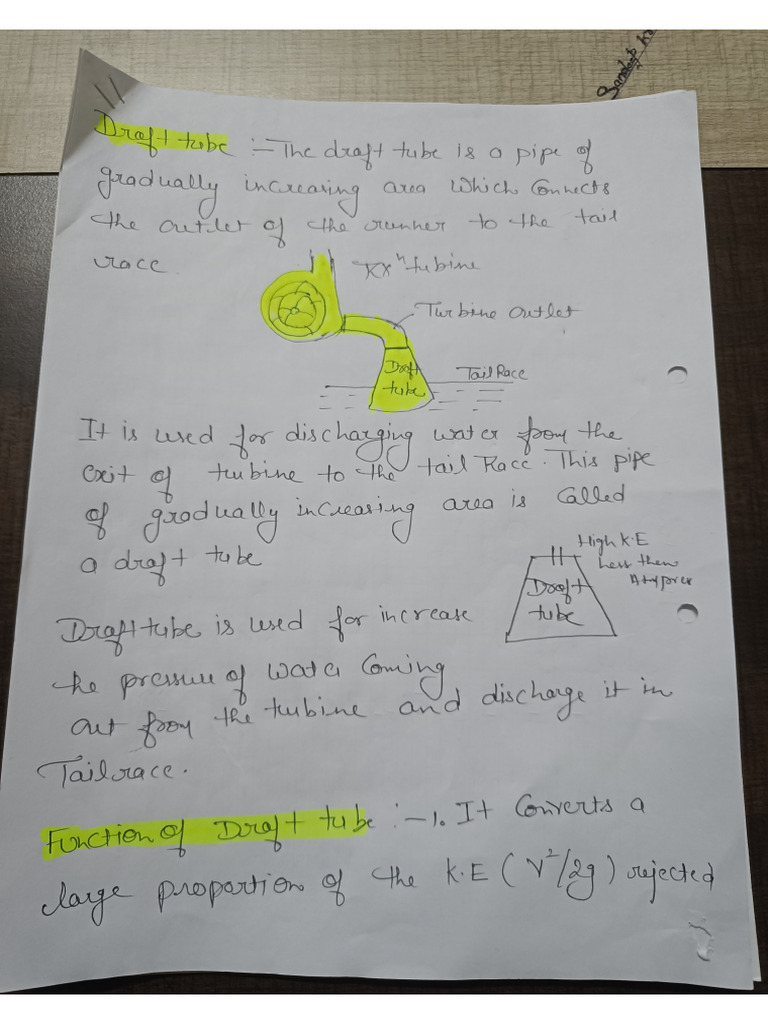 Draft tube :- The draft tube is a pipe of
gradually increasing area which connects
the outlet of the runner to the tail
race
Rxⁿ tubine
Turbine outlet
Draft
tube
Tail Race
It is used for discharging water from the
exit of turbine to the tail Race. This pipe
of gradually increasing area is called
a draft tube
High K.E
Less then
Draft
tube
Draft tube is used for increase
the pressure of water coming
out from the turbine and discharge it in
Tailrace.
Function of Draft tube :- 1. It converts a
large proportion of the K.E (V²/2g) rejected